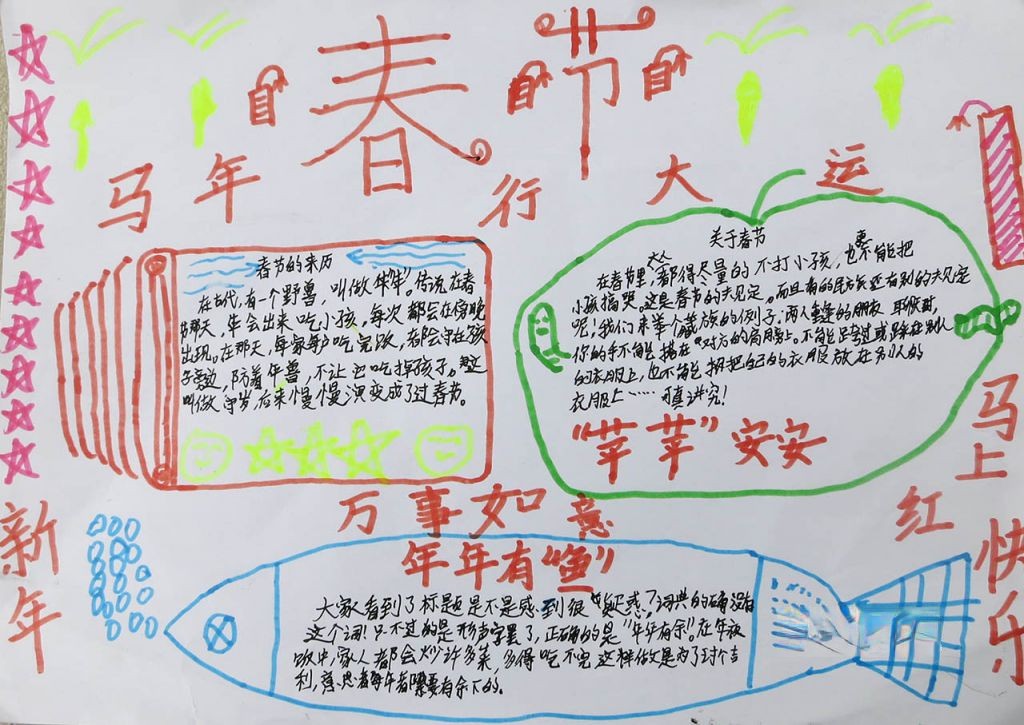 春节
马年行大运
春节的来历
在古代,有一个野兽,叫做"年"。传说在春
节那天,年会出来吃小孩,每次都会在傍晚
出现。在那天,每家每户吃完饭,都会守在孩
子旁边,防着年兽,不让它吃掉孩子。这
叫做守岁,后来慢慢演变成了过春节。
关于春节
在春节里,大人都得尽量的不打小孩,也不能把
小孩搞哭。这是春节的规定。而且有的民族还有别的规定
呢!我们来举个藏族的例子:两人重逢的朋友
你的手不能搭在对方的肩膀上。不能跨过或踩在别人
的衣服上,也不能把自己的衣服放在别人的
衣服上……可真讲究!
"苹苹"安安
马上红
万事如意
新年快乐
年年有"鱼"
大家看到了标题是不是感到很"疑惑"?词典的确没有
这个词!只不过的是形声字罢了,正确的是"年年有余"。在年夜
饭中,家人都会炒许多菜,多得吃不完,这样做是为了讨个吉
利,意思着每年都需要有余下的。